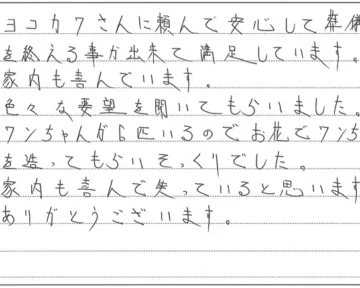 ヨコカワさんに頼んで安心して葬儀
を終える事が出来て満足しています。
家内も喜んでいます。
色々な要望を聞いてもらいました。
ワンちゃんが6匹いるのでお花でワンちゃん
を造ってもらいそっくりでした。
家内も喜んで笑っていると思います
ありがとうございます。